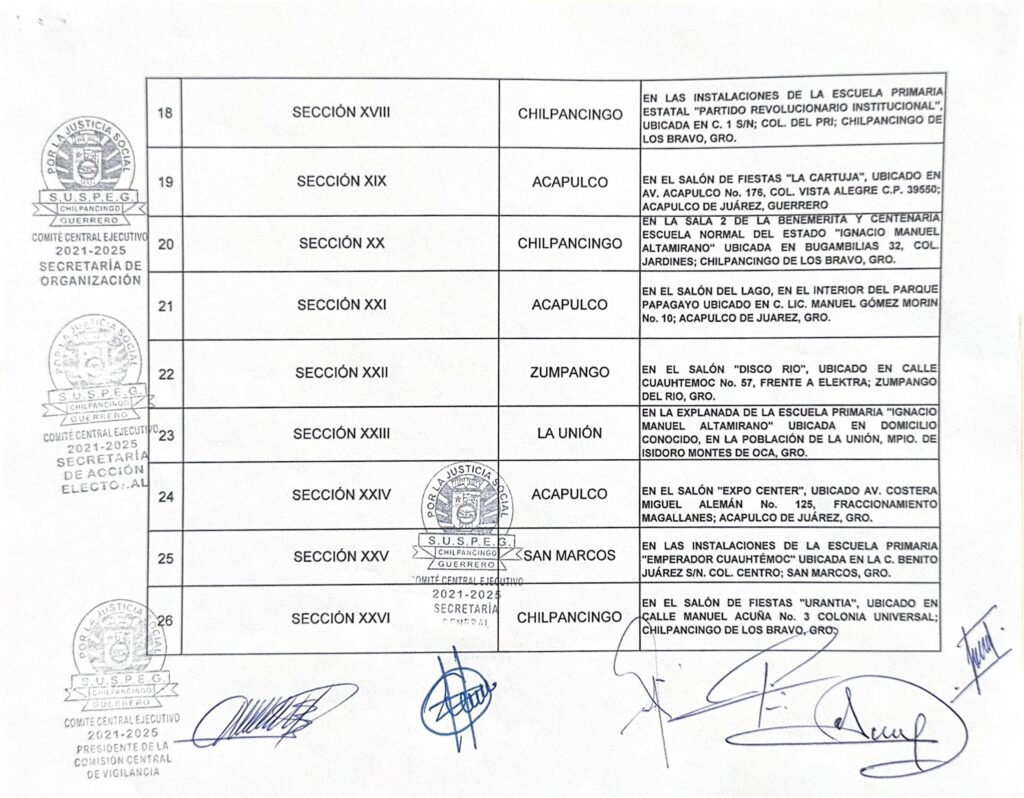 18 SECCIÓN XVIII CHILPANCINGO
EN LAS INSTALACIONES DE LA ESCUELA PRIMARIA
ESTATAL "PARTIDO REVOLUCIONARIO INSTITUCIONAL",
UBICADA EN C. 1 S/N; COL. DEL PRI; CHILPANCINGO DE
LOS BRAVO, GRO.
POR LA JUSTICIA SOCIAL
S.U.S.P.E.G.
CHILPANCINGO
GUERRERO
COMITÉ CENTRAL EJECUTIVO
2021-2025
SECRETARÍA DE
ORGANIZACIÓN
19 SECCIÓN XIX ACAPULCO
EN EL SALÓN DE FIESTAS "LA CARTUJA", UBICADO EN
AV. ACAPULCO No. 176, COL. VISTA ALEGRE C.P. 39550;
ACAPULCO DE JUÁREZ, GUERRERO
20 SECCIÓN XX CHILPANCINGO
EN LA SALA 2 DE LA BENEMERITA Y CENTENARIA
ESCUELA NORMAL DEL ESTADO "IGNACIO MANUEL
ALTAMIRANO" UBICADA EN BUGAMBILIAS 32, COL.
JARDINES; CHILPANCINGO DE LOS BRAVO, GRO.
21 SECCIÓN XXI ACAPULCO
EN EL SALÓN DEL LAGO, EN EL INTERIOR DEL PARQUE
PAPAGAYO UBICADO EN C. LIC. MANUEL GÓMEZ MORIN
No. 10; ACAPULCO DE JUAREZ, GRO.
22 SECCIÓN XXII ZUMPANGO
EN EL SALÓN "DISCO RIO", UBICADO EN CALLE
CUAUHTEMOC No. 57, FRENTE A ELEKTRA; ZUMPANGO
DEL RIO, GRO.
POR LA JUSTICIA SOCIAL
S.U.S.P.E.G.
CHILPANCINGO
GUERRERO
COMITÉ CENTRAL EJECUTIVO
2021-2025
SECRETARÍA
DE ACCIÓN
ELECTORAL
23 SECCIÓN XXIII LA UNIÓN
EN LA EXPLANADA DE LA ESCUELA PRIMARIA "IGNACIO
MANUEL ALTAMIRANO" UBICADA EN DOMICILIO
CONOCIDO, EN LA POBLACIÓN DE LA UNIÓN, MPIO. DE
ISIDORO MONTES DE OCA, GRO.
24 SECCIÓN XXIV ACAPULCO
EN EL SALÓN "EXPO CENTER", UBICADO AV. COSTERA
MIGUEL ALEMÁN No. 125, FRACCIONAMIENTO
MAGALLANES; ACAPULCO DE JUÁREZ, GRO.
25 SECCIÓN XXV SAN MARCOS
EN LAS INSTALACIONES DE LA ESCUELA PRIMARIA
"EMPERADOR CUAUHTÉMOC" UBICADA EN LA C. BENITO
JUÁREZ S/N. COL. CENTRO; SAN MARCOS, GRO.
POR LA JUSTICIA SOCIAL
S.U.S.P.E.G.
CHILPANCINGO
GUERRERO
COMITÉ CENTRAL EJECUTIVO
2021-2025
SECRETARÍA
GENERAL
26 SECCIÓN XXVI CHILPANCINGO
EN EL SALÓN DE FIESTAS "URANTIA", UBICADO EN
CALLE MANUEL ACUÑA No. 3 COLONIA UNIVERSAL;
CHILPANCINGO DE LOS BRAVO, GRO;
POR LA JUSTICIA SOCIAL
S.U.S.P.E.G.
CHILPANCINGO
GUERRERO
COMITÉ CENTRAL EJECUTIVO
2021-2025
PRESIDENTE DE LA
COMISIÓN CENTRAL
DE VIGILANCIA